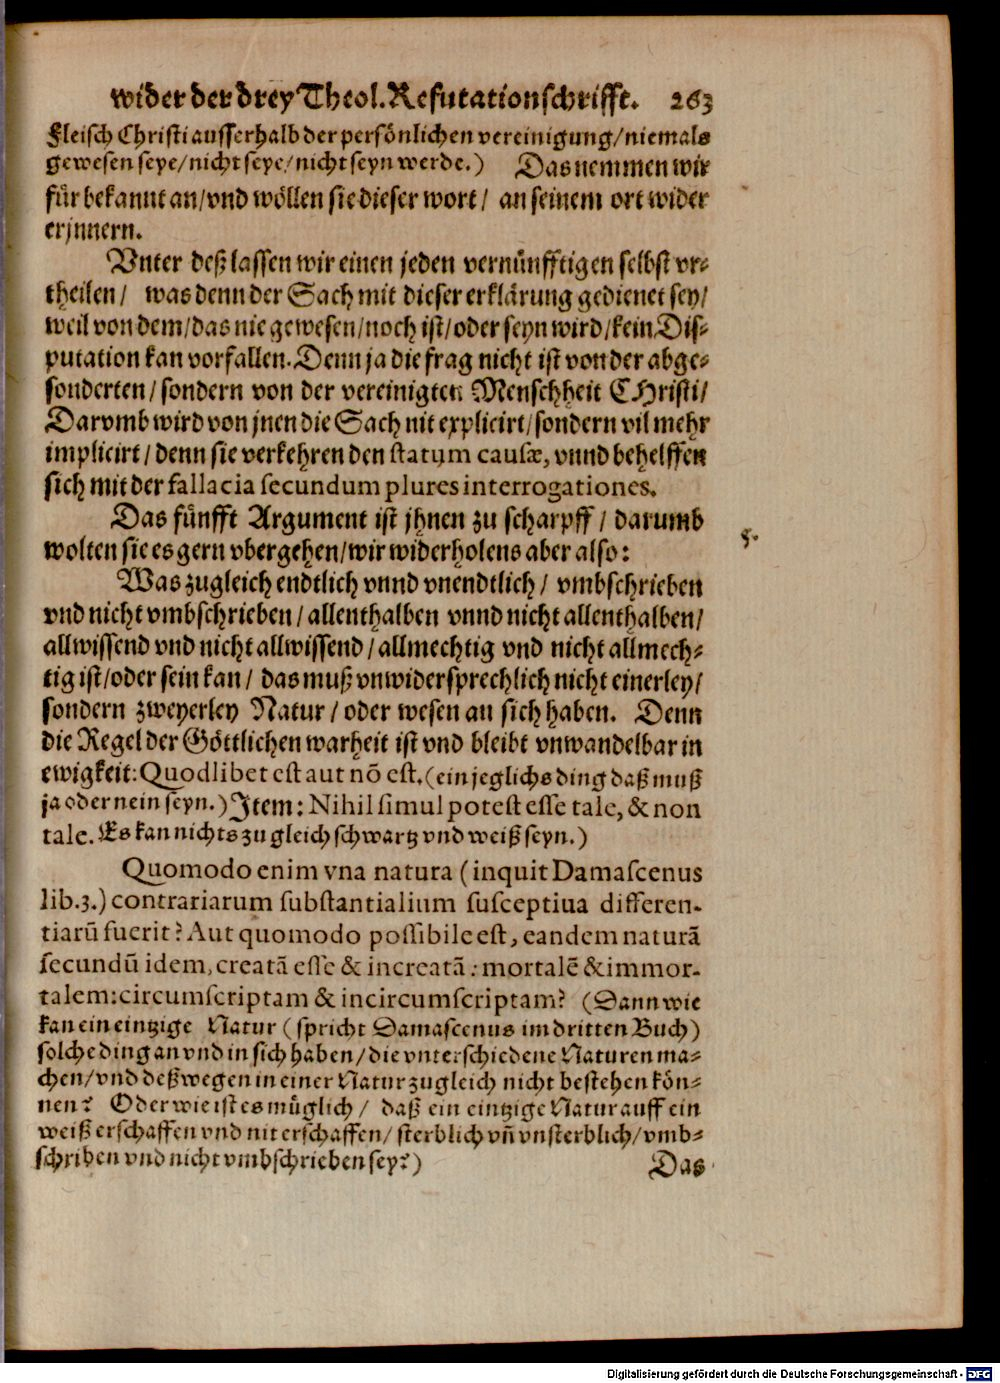 wider der drey Theol. Refutationschrifft. 263
Fleisch Christi ausserhalb der persönlichen vereinigung/niemals
gewesen seye/nicht seye/nicht seyn werde.) Das nemmen wir
für bekannt an/vnd wöllen sie dieser wort/ an seinem ort wider
erjnnern.
Vnter deß lassen wir einen jeden vernünfftigen selbst vr-
theilen/ was denn der Sach mit dieser erklärung gedienet sey/
weil von dem/das nie gewesen/noch ist/oder seyn wird/kein Dis-
putation kan vorfallen. Denn ja die frag nicht ist von der abge-
sonderten/sondern von der vereinigten Menschheit CHristi/
Darvmb wird von jnen die Sach nit explicirt/sondern vil mehr
implicirt/denn sie verkehren den statum causæ, vnnd behelffen
sich mit der fallacia secundum plures interrogationes.
Das fünfft Argument ist jhnen zu scharpff/ darumb
wolten sie es gern vbergehen/wir widerholens aber also:
5.
Was zugleich endtlich vnnd vnendtlich/ vmbschrieben
vnd nicht vmbschrieben/allenthalben vnnd nicht allenthalben/
allwissend vnd nicht allwissend/allmechtig vnd nicht allmech-
tig ist/oder sein kan/ das muß vnwidersprechlich nicht einerley/
sondern zweyerley Natur/oder wesen an sich haben. Denn
die Regel der Göttlichen warheit ist vnd bleibt vnwandelbar in
ewigkeit: Quodlibet est aut nõ est. (ein jeglichs ding daß muß
ja oder nein seyn.) Item: Nihil simul potest esse tale, & non
tale. Es kan nichts zu gleich schwartz vnd weiß seyn.)
Quomodo enim vna natura (inquit Damascenus
lib.3.) contrariarum substantialium susceptiua differen-
tiarũ fuerit? Aut quomodo possibile est, eandem naturã
secundũ idem, creatã esse & increatã: mortalẽ & immor-
talem: circumscriptam & incircumscriptam? (Dann wie
kan ein eintzige Natur (spricht Damascenus im dritten Buch)
solche ding an vnd in sich haben/die vnterschiedene Naturen ma-
chen/vnd deßwegen in einer Natur zugleich nicht bestehen kön-
nen? Oder wie ist es müglich/ daß ein eintzige Natur auff ein
weiß erschaffen vnd nit erschaffen/ sterblich vñ vnsterblich/vmb-
schriben vnd nicht vmbschrieben sey?)
Das
Digitalisierung gefördert durch die Deutsche Forschungsgemeinschaft - DFG